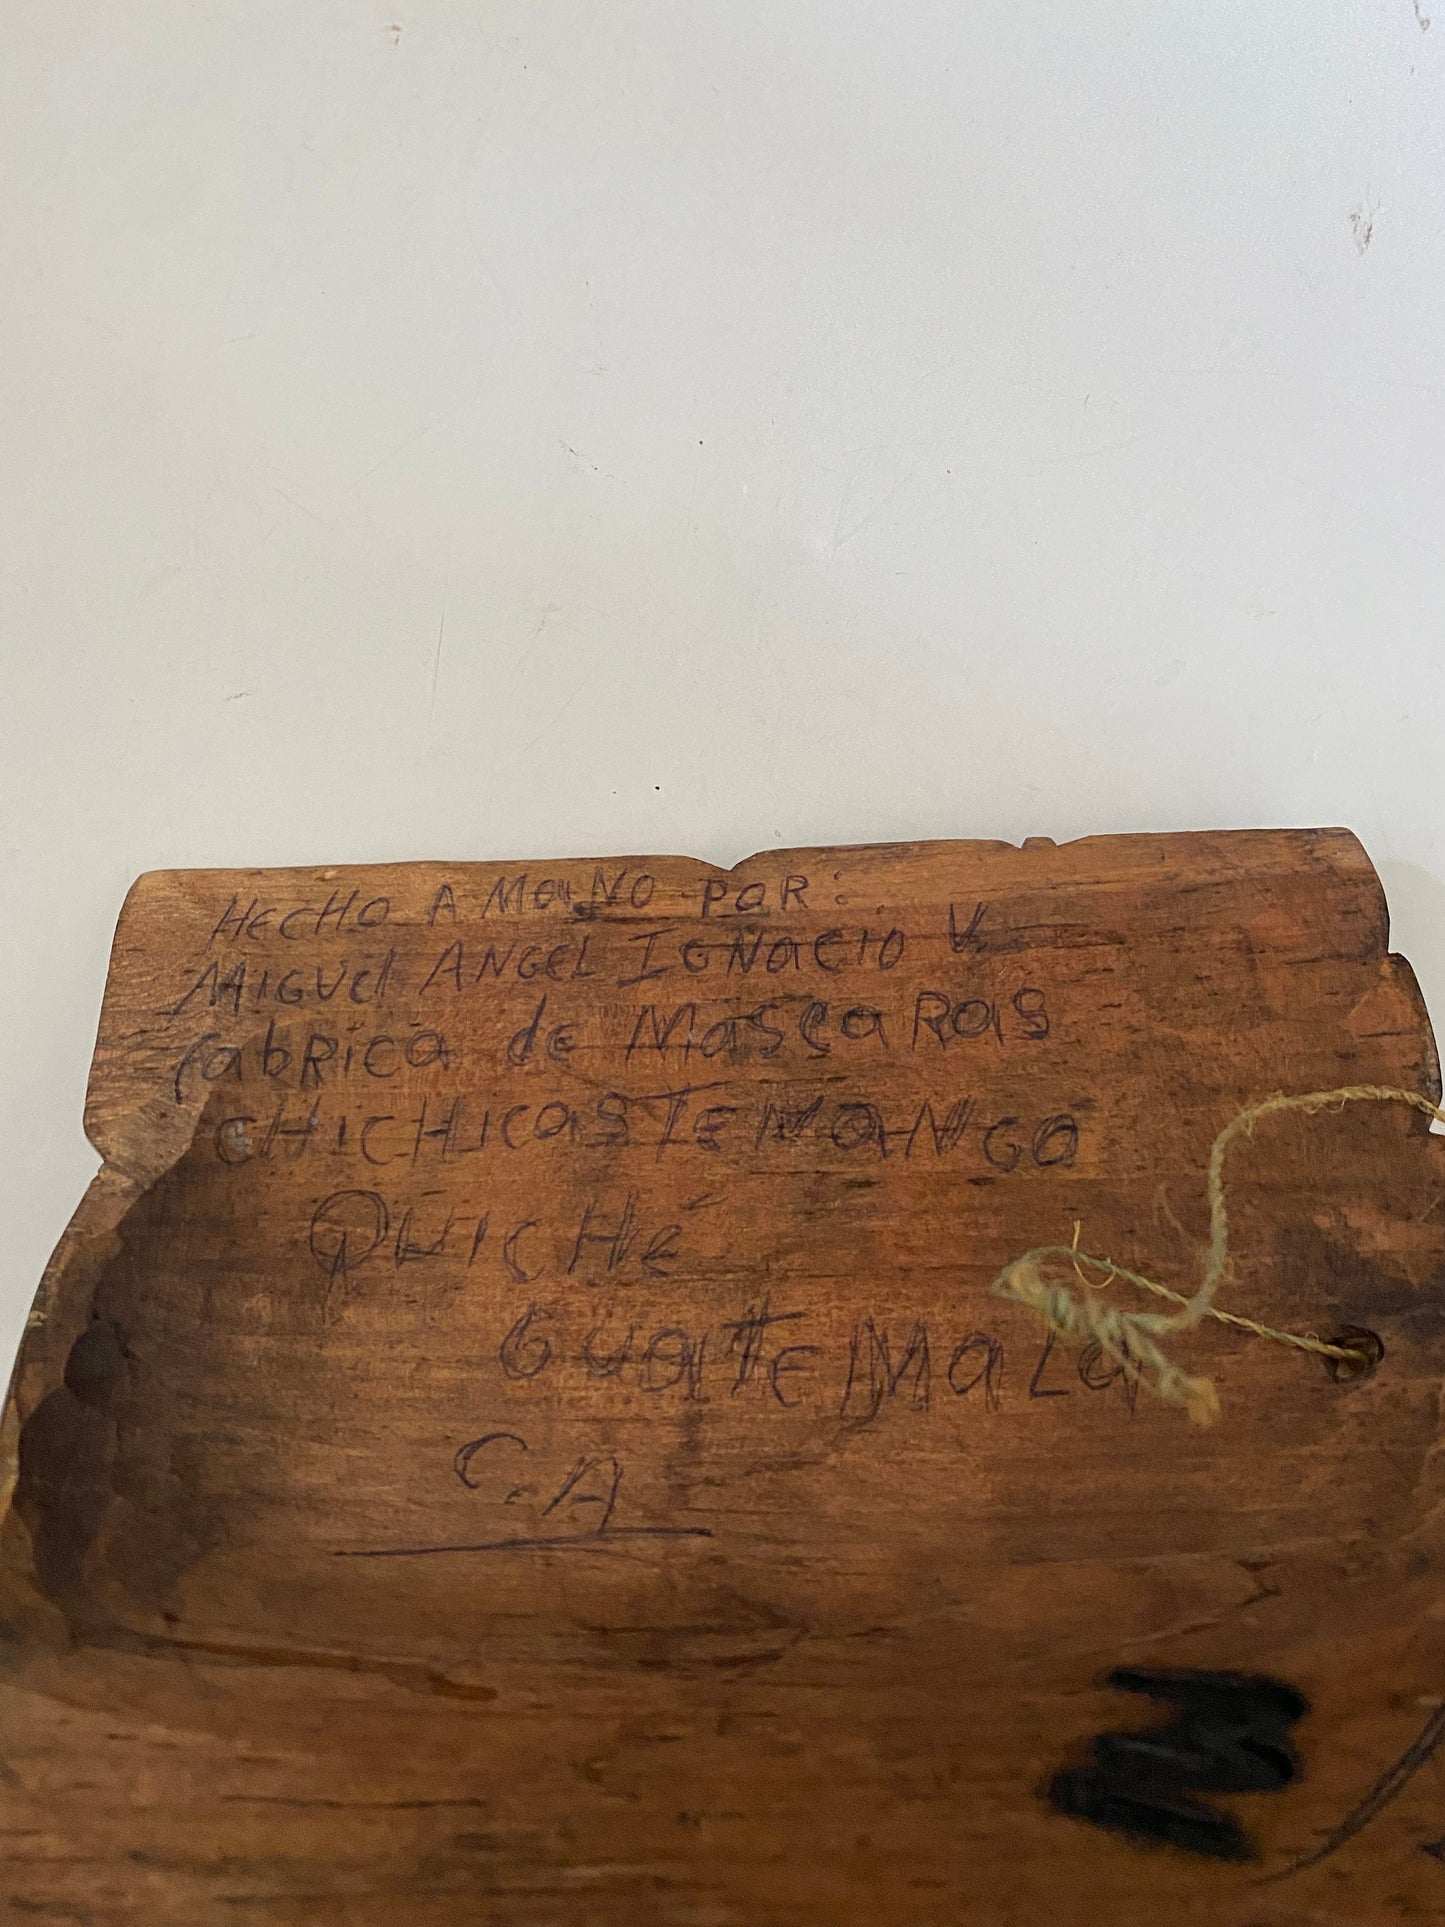 HECHO A MaNO POR:
MIGUEl ANGEL IGNacio V.
fabRica de MascaRas
CHICHICasTENaNGO
QUICHé
GUaTEMaLa
C.A